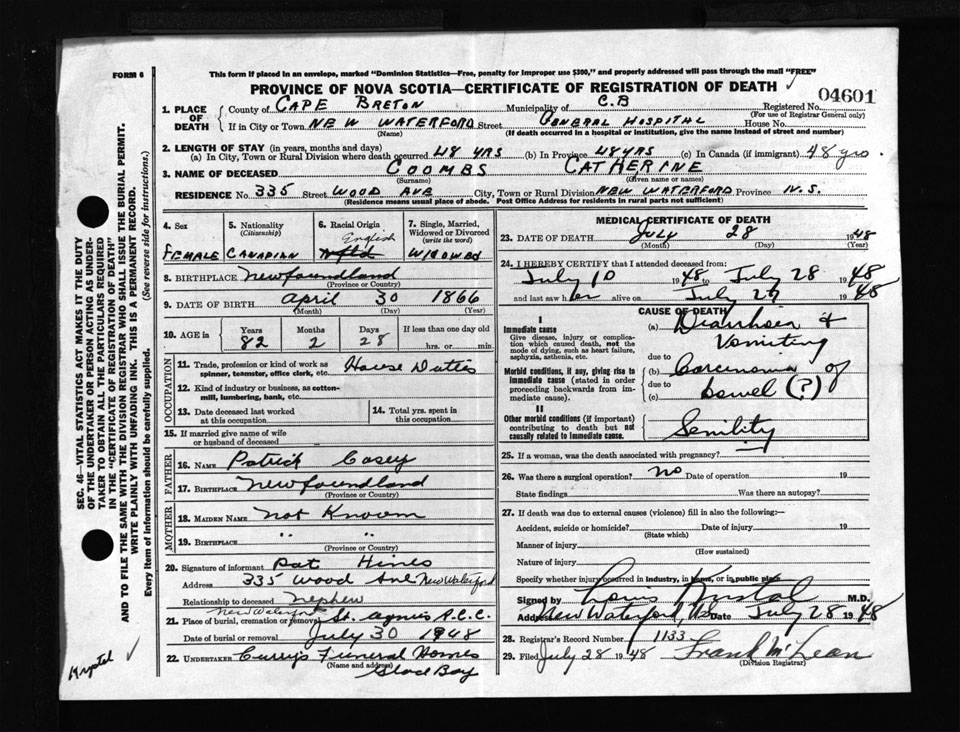 FORM 6
This form if placed in an envelope, marked "Dominion Statistics—Free, penalty for improper use $300," and properly addressed will pass through the mail "FREE"
PROVINCE OF NOVA SCOTIA—CERTIFICATE OF REGISTRATION OF DEATH
04601
1. PLACE OF DEATH
County of CAPE BRETON Municipality of C.B Registered No.
(For use of Registrar General only)
If in City or Town NEW WATERFORD Street GENERAL HOSPITAL House No.
(Name) (If death occurred in a hospital or institution, give the name instead of street and number)
2. LENGTH OF STAY (in years, months and days)
(a) In City, Town or Rural Division where death occurred 48 YRS (b) In Province 48 YRS (c) In Canada (if immigrant) 48 yrs.
3. NAME OF DECEASED COOMBS CATHERINE
(Surname) (Given name or names)
RESIDENCE No. 335 Street WOOD AVE City, Town or Rural Division NEW WATERFORD Province N.S.
(Residence means usual place of abode. Post Office Address for residents in rural parts not sufficient)
4. Sex
FEMALE
5. Nationality (Citizenship)
CANADIAN
6. Racial Origin
English
Nfld
7. Single, Married, Widowed or Divorced (write the word)
WIDOWED
8. BIRTHPLACE Newfoundland
(Province or Country)
9. DATE OF BIRTH April 30 1866
(Month) (Day) (Year)
10. AGE in
Years Months Days If less than one day old
82 2 28 hrs. or min.
OCCUPATION
11. Trade, profession or kind of work as spinner, teamster, office clerk, etc. House Duties
12. Kind of industry or business, as cotton-mill, lumbering, bank, etc.
13. Date deceased last worked at this occupation
14. Total yrs. spent in this occupation
15. If married give name of wife or husband of deceased
FATHER
16. NAME Patrick Casey
17. BIRTHPLACE Newfoundland
(Province or Country)
MOTHER
18. MAIDEN NAME not Known
19. BIRTHPLACE " "
(Province or Country)
20. Signature of informant Pat Hines
Address 335 Wood Ave New Waterford
Relationship to deceased nephew
21. Place of burial, cremation or removal New Waterford St. Agnis R.C.C.
Date of burial or removal July 30 1948
22. UNDERTAKER Curry's Funeral Homes
(Name and address)
Glace Bay
MEDICAL CERTIFICATE OF DEATH
23. DATE OF DEATH July 28 1948
(Month) (Day) (Year)
24. I HEREBY CERTIFY that I attended deceased from:
July 10 1948 to July 28 1948
and last saw her alive on July 27 1948
CAUSE OF DEATH
I
Immediate cause
Give disease, injury or complication which caused death, not the mode of dying, such as heart failure, asphyxia, asthenia, etc.
(a) Diarrhoea & Vomiting
due to
Morbid conditions, if any, giving rise to immediate cause (stated in order proceeding backwards from immediate cause).
(b) Carcinoma of
due to
(c) bowel (?)
II
Other morbid conditions (if important) contributing to death but not causally related to immediate cause.
Senility
25. If a woman, was the death associated with pregnancy?
26. Was there a surgical operation? no Date of operation 19
State findings Was there an autopsy?
27. If death was due to external causes (violence) fill in also the following:—
Accident, suicide or homicide? Date of injury 19
(State which)
Manner of injury
(How sustained)
Nature of injury
Specify whether injury occurred in industry, in home, or in public place
Signed by Louis Kristal M.D.
Address New Waterford, NS Date July 28 1948
28. Registrar's Record Number 1133
29. Filed July 28 1948 Frank McLean
(Division Registrar)
SEC. 46—VITAL STATISTICS ACT MAKES IT THE DUTY
OF THE UNDERTAKER OR PERSON ACTING AS UNDER-
TAKER TO OBTAIN ALL THE PARTICULARS REQUIRED
IN THE "CERTIFICATE OF REGISTRATION OF DEATH"
AND TO FILE THE SAME WITH THE DIVISION REGISTRAR WHO SHALL ISSUE THE BURIAL PERMIT.
WRITE PLAINLY WITH UNFADING INK. THIS IS A PERMANENT RECORD.
Every item of information should be carefully supplied. (See reverse side for instructions.)
Krystal